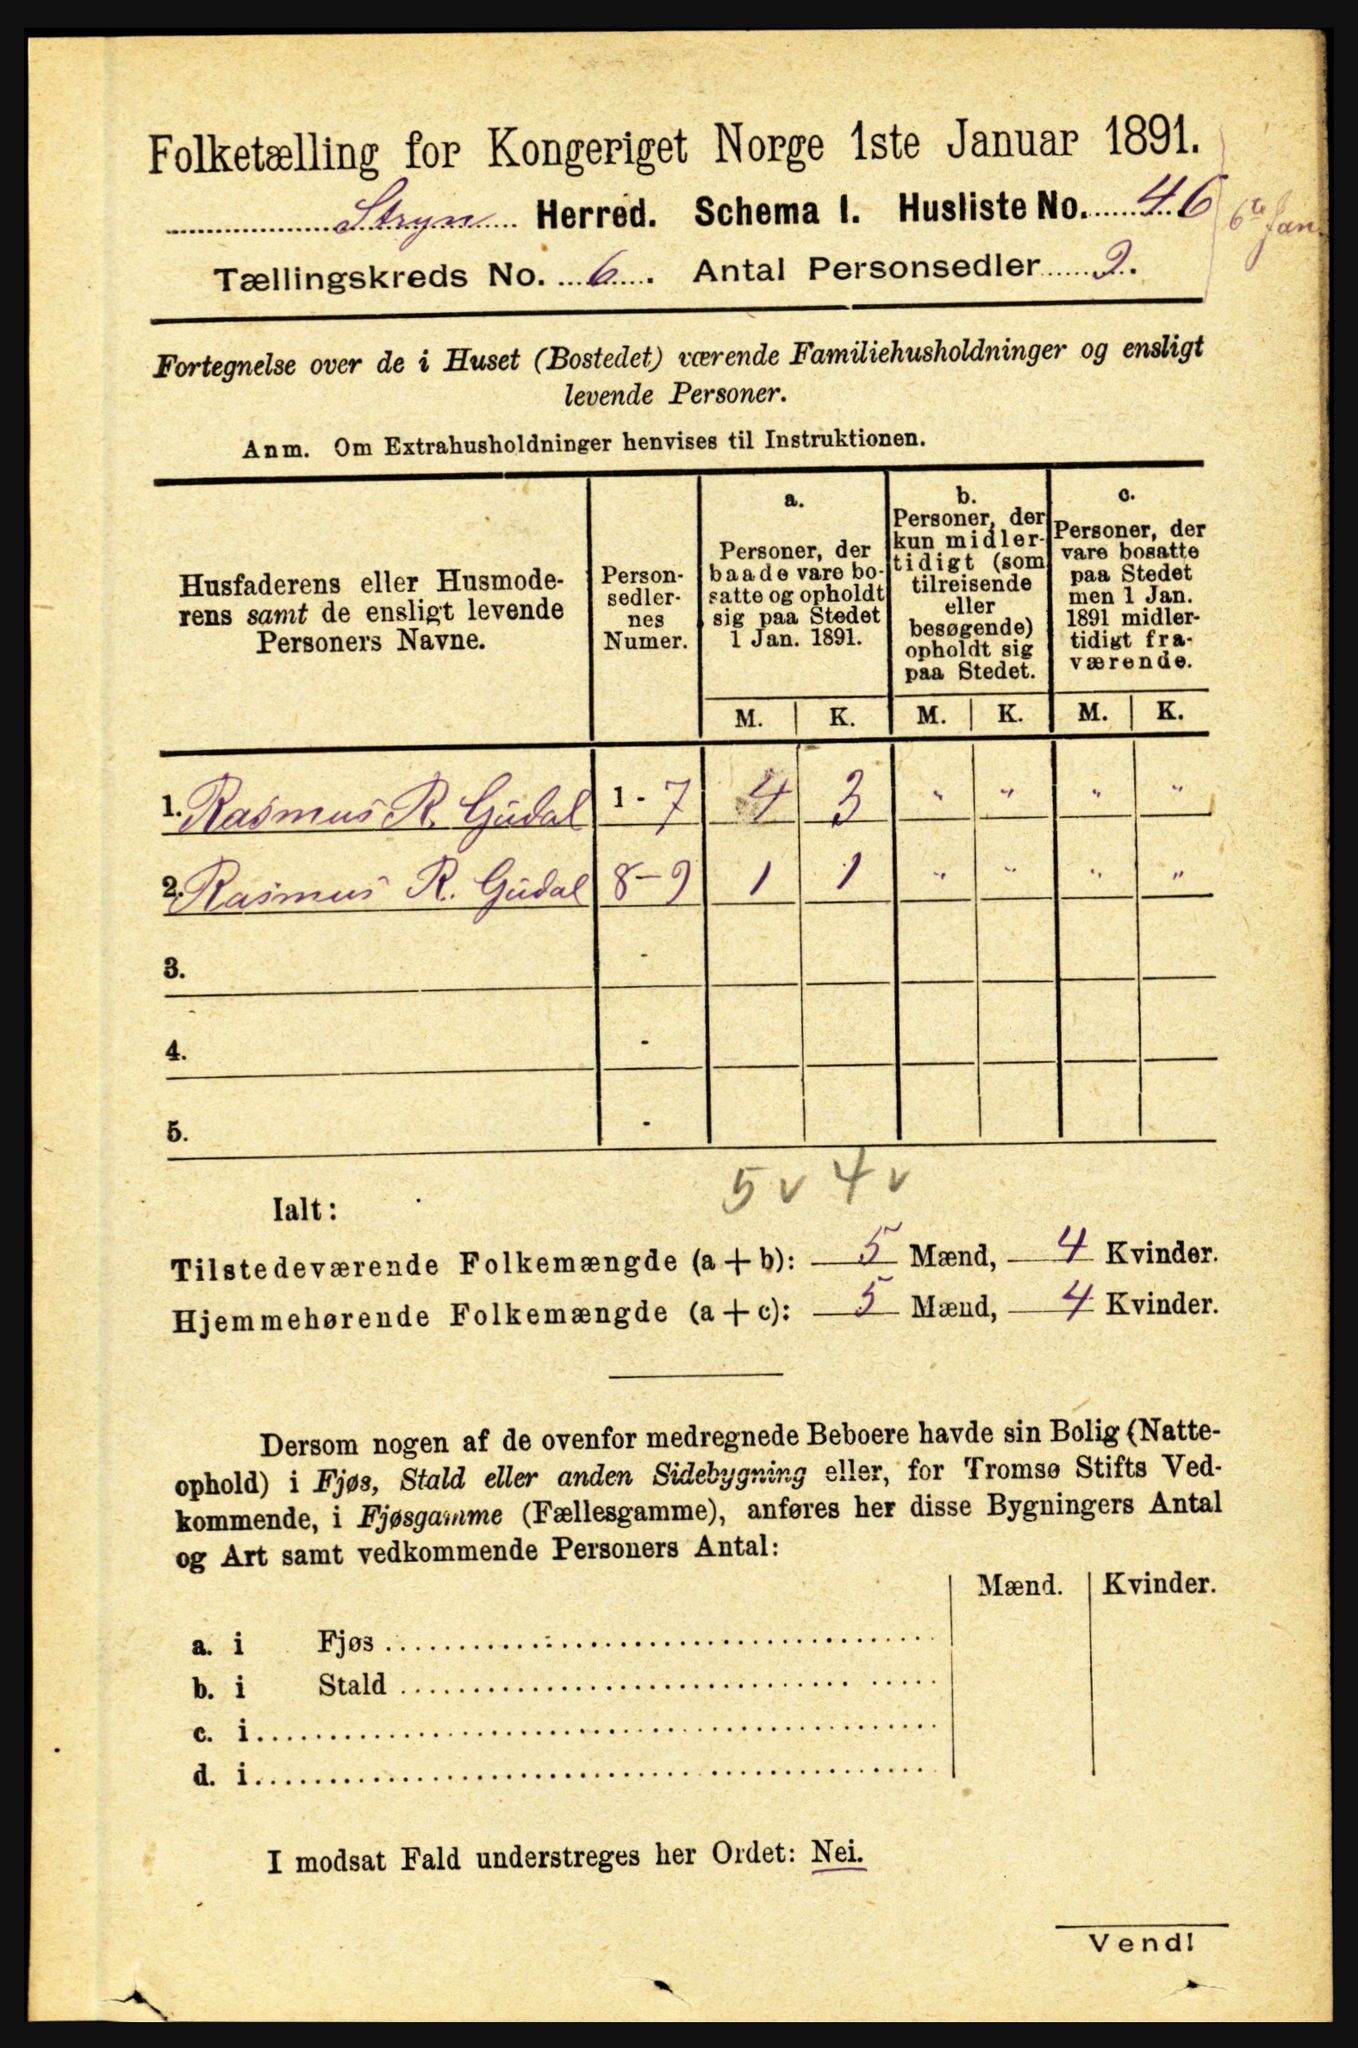 Folketælling for Kongeriget Norge 1ste Januar 1891.
Stryn Herred. Schema I. Husliste No. 46
6te Jan.
Tællingskreds No. 6. Antal Personsedler 9.
Fortegnelse over de i Huset (Bostedet) værende Familiehusholdninger og ensligt
levende Personer.
Anm. Om Extrahusholdninger henvises til Instruktionen.
Husfaderens eller Husmode-
rens samt de ensligt levende
Personers Navne.
Person-
sedler-
nes
Numer.
a.
Personer, der
baade vare bo-
satte og opholdt
sig paa Stedet
1 Jan. 1891.
b.
Personer, der
kun midler-
tidigt (som
tilreisende
eller
besøgende)
opholdt sig
paa Stedet.
c.
Personer, der
vare bosatte
paa Stedet
men 1 Jan.
1891 midler-
tidigt fra-
værende.
M. K. M. K. M. K.
1. Rasmus R. Güdal 1 - 7 4 3 " " " "
2. Rasmus R. Güdal 8-9 1 1 " " " "
3. -
4. -
5. -
5 v 4 v
Ialt:
Tilstedeværende Folkemængde (a + b): 5 Mænd, 4 Kvinder.
Hjemmehørende Folkemængde (a + c): 5 Mænd, 4 Kvinder.
Dersom nogen af de ovenfor medregnede Beboere havde sin Bolig (Natte-
ophold) i Fjøs, Stald eller anden Sidebygning eller, for Tromsø Stifts Ved-
kommende, i Fjøsgamme (Fællesgamme), anføres her disse Bygningers Antal
og Art samt vedkommende Personers Antal:
Mænd. Kvinder.
a. i Fjøs
b. i Stald
c. i
d. i
I modsat Fald understreges her Ordet: Nei.
Vend!